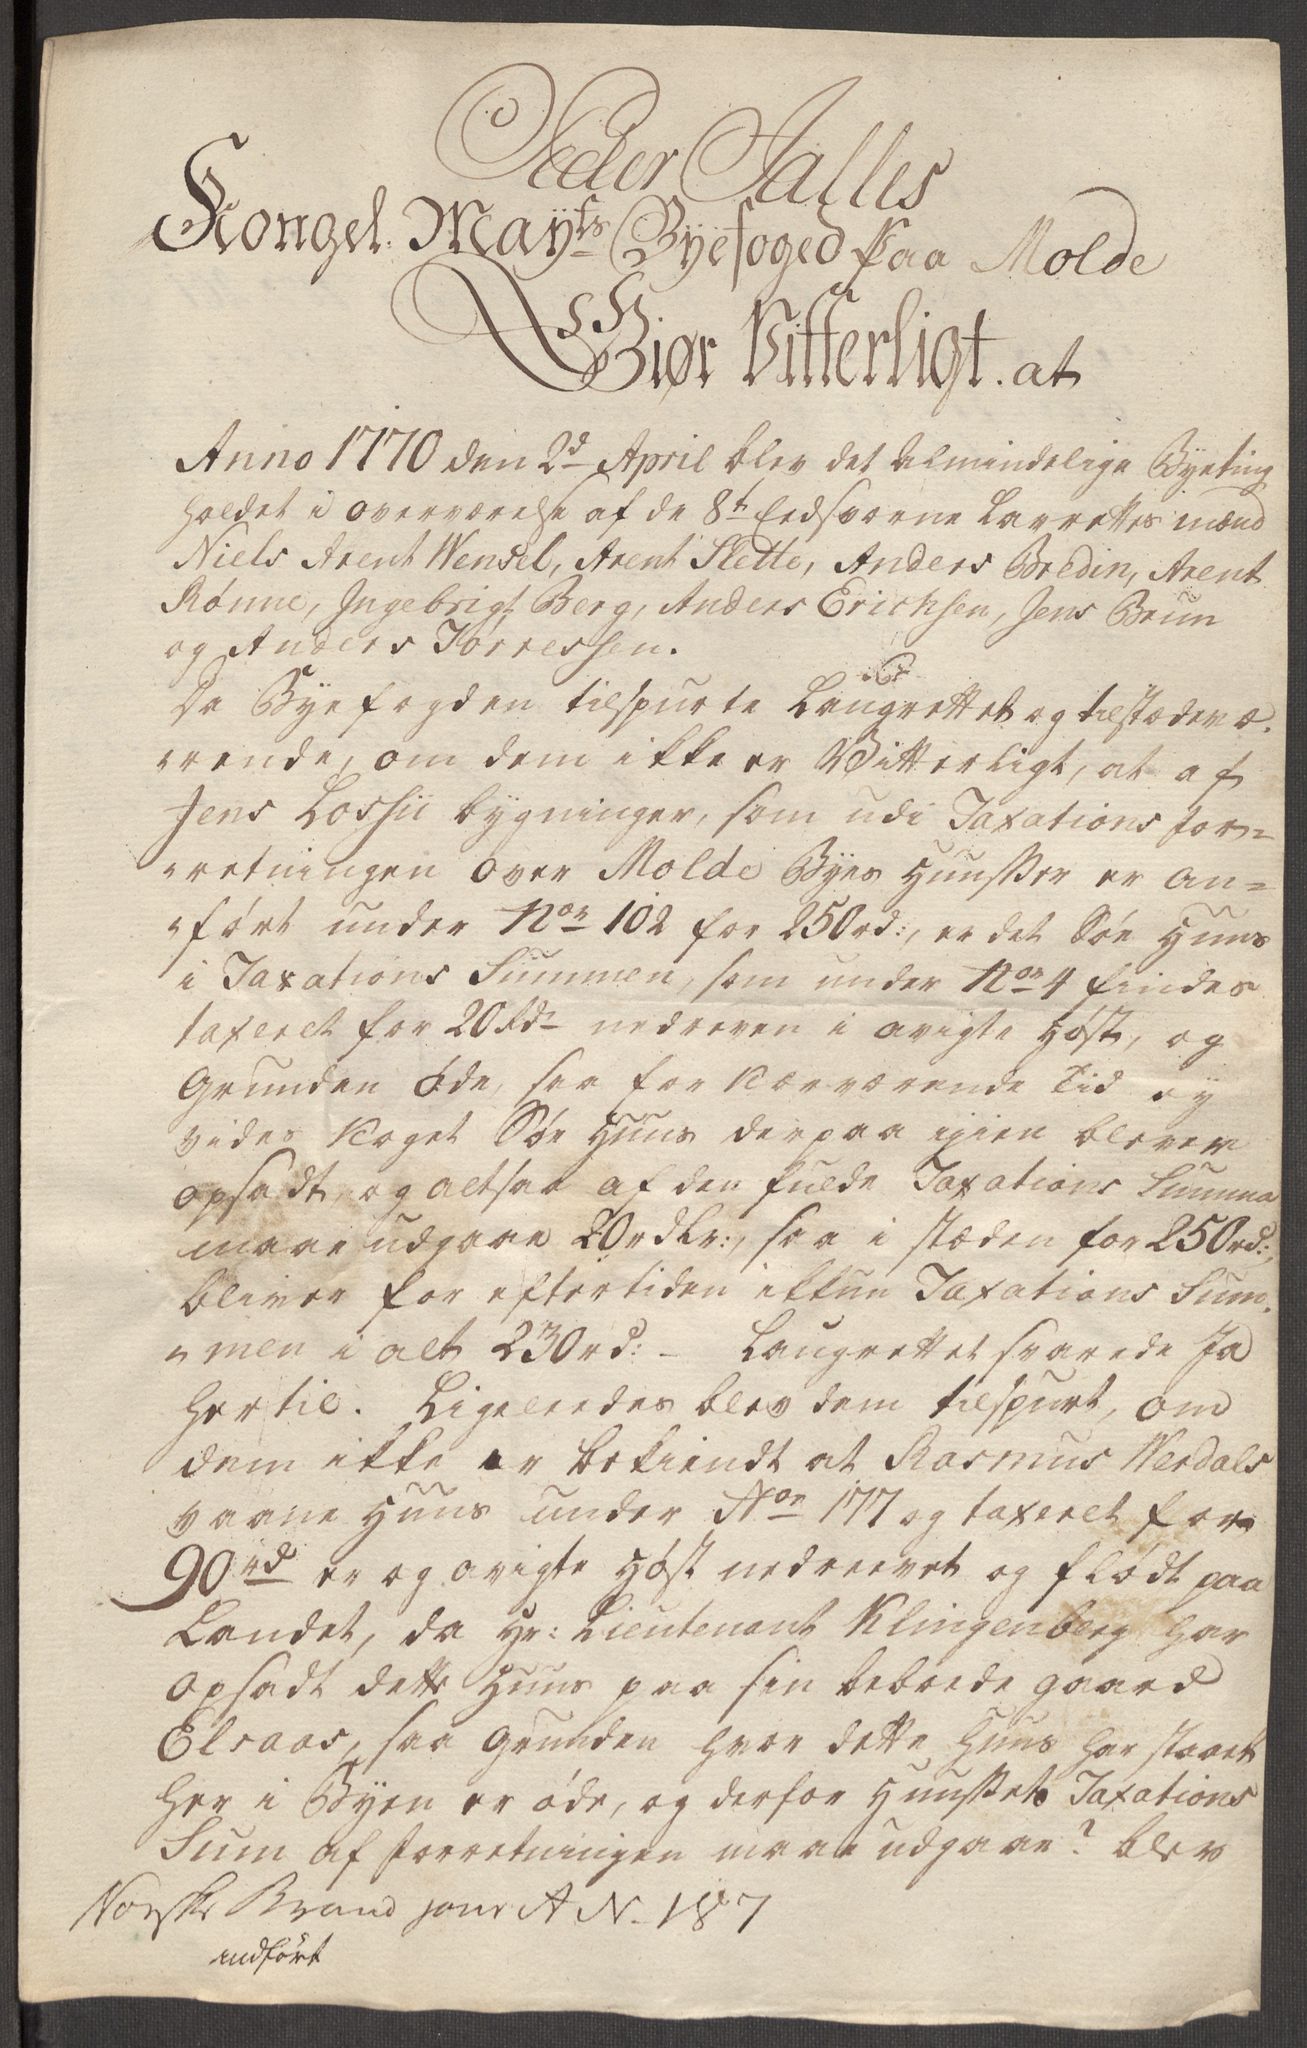 Peder Jalles
Kongel: Mayts Byefoged Paa Molde
Giør Vitterligt at
Anno 1770 den 2d April blev det almindelige Byeting
holdet i overværelse af de 8t Eedsvorne Lavrettes mænd
Niels Arent Wensel, Arent Slette, Anders Bredin, Arent
Rønne, Ingebrigt Berg, Anders Erichsen, Jens Brun
og Anders Torressen.
Da Byefogden tilspurte Laugrettet og tilstædevæ-
rende, om dem ikke er Vitterligt, at af
Jens Lossii bygninger, som udi Taxations for=
retningen over Molde Byes Huusser er an=
ført under Nor 102 for 250rd:, er det Søe Huus
i Taxations Summen, som under Nor 4 findes
taxeret for 20 Rdr nedreven i avigte Høst, og
Grunden øde, saa for nærværende Tid ey
vides noget Søe Huus derpaa igien bliver
opsadt, og altsaa af den fulde Taxations Summa
maae udgaae 20rdlr:, saa i stæden for 250rd:,
bliver for eftertiden ikkun Taxations Sum-
men i alt 230rd: - Laugrettet svarede Ja
hertil. Ligeleedes blev dem tilspurt, om
dem ikke er bekiendt at Rasmus Werdals
vaane Huus under Nor 177 og taxeret for
90rd er og avigte Høst nedreevet og flødt paa
Landet, da Hr: Lieutenant Klingenberg har
opsadt dette Huus paa sin beboede gaard
Elsaas, saa Grunden hvor dette Huus har staaet
her i Byen er øde, og derfor Huussets Taxations
Sum af forretningen maae udgaae? blev
Norske Brand Jour A N. 187
indført